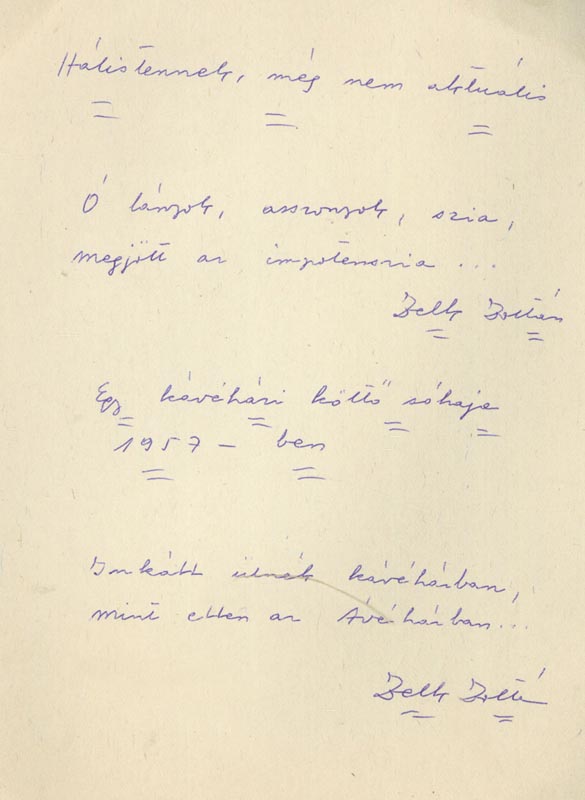 Hálistennek, még nem aktuális
Ó lányok, asszonyok, szia,
megjött az impotenszia ...
Zelk Zoltán
Egy kávéházi költő sóhaja
1957-ben
Inkább ülnék kávéházban,
mint ebben az Ávéházban...
Zelk Zoltán